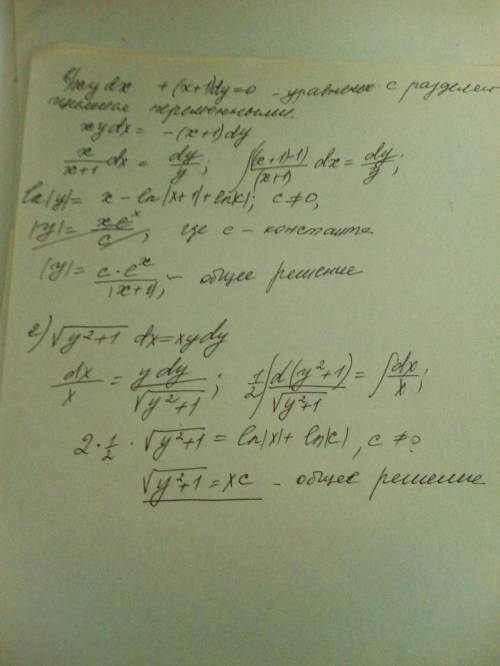 1) xydx + (x+1)dy=0 - уравнение с разделяющимися переменными.
xydx = -(x+1)dy
x/(x+1) dx = dy/y; ∫((x+1)-1)/(x+1) dx = dy/y;
ln|y| = x - ln|x+1| + ln|c|; c≠0,
|y| = xe^x/c, где c - константа
|y| = c·e^x/|x+1|, - общее решение
2) √(y²+1) dx = xydy
dx/x = ydy/√(y²+1); 1/2 ∫ d(y²+1)/√(y²+1) = ∫ dx/x;
2·1/2·√(y²+1) = ln|x| + ln|c|, c≠0
√(y²+1) = xc - общее решение